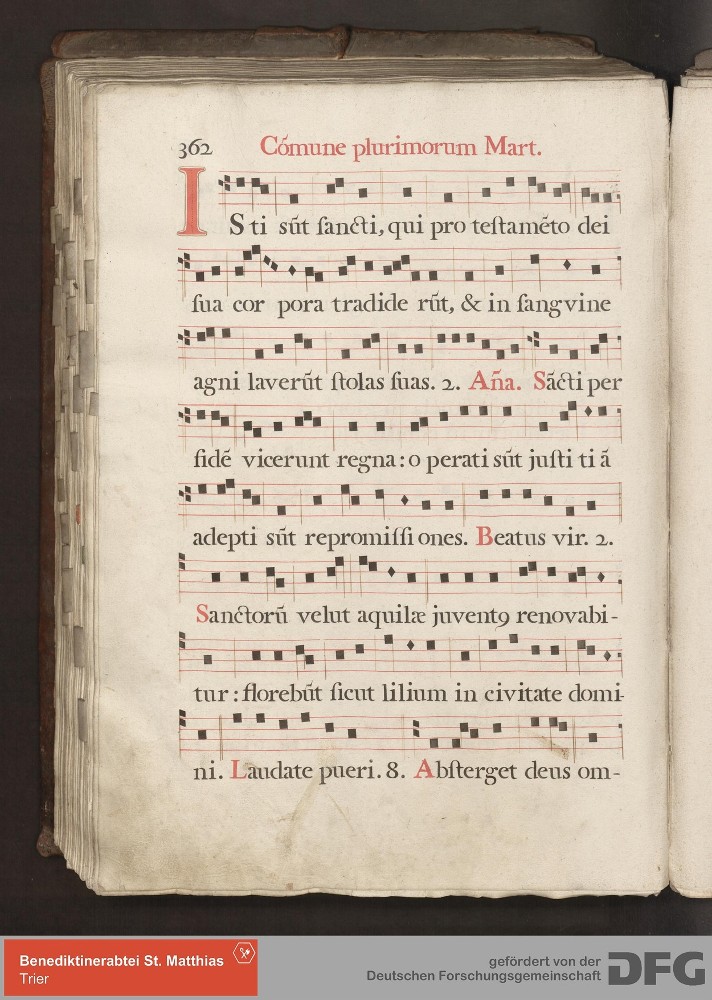 362 Cõmune plurimorum Mart.
IS ti sũt ſancti, qui pro teſtamẽto dei
ſua cor pora tradide rũt, & in ſangvine
agni laverũt ſtolas ſuas. 2. Añа. Sãcti per
fidẽ vicerunt regna: o perati sũt juſti ti ã
adepti sũt repromiſſi ones. Beatus vir. 2.
Sanctorũ velut aquilæ juventꝯ renovabi-
tur: florebũt ſicut lilium in civitate domi-
ni. Laudate pueri. 8. Abſterget deus om-
Benediktinerabtei St. Matthias
Trier
gefördert von der
Deutschen Forschungsgemeinschaft
DFG